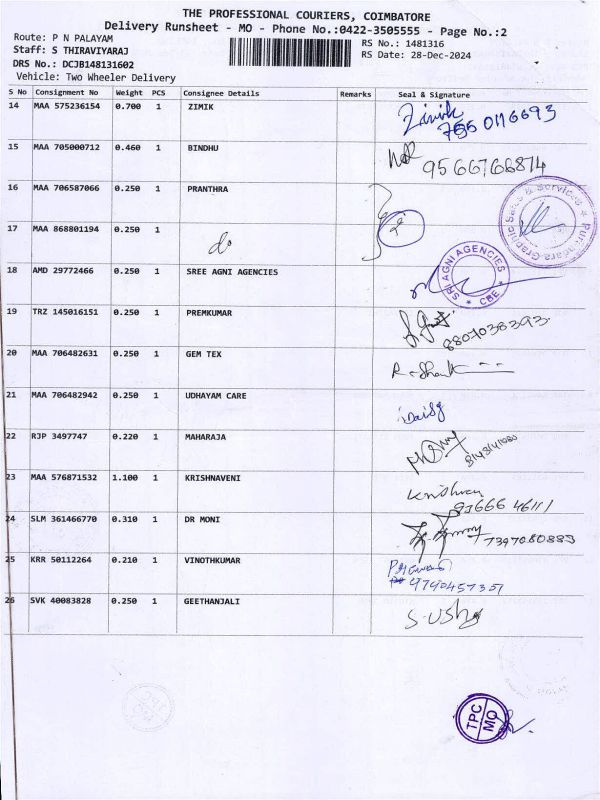 THE PROFESSIONAL COURIERS, COIMBATORE
Delivery Runsheet - MO - Phone No.:0422-3505555 - Page No.:2
Route: P N PALAYAM
Staff: S THIRAVIYARAJ
RS No.: 1481316
RS Date: 28-Dec-2024
DRS No.: DCJB148131602
Vehicle: Two Wheeler Delivery
S No Consignment No Weight PCS Consignee Details Remarks Seal & Signature
14 MAA 575236154 0.700 1 ZIMIK Zimik
15 MAA 705000712 0.460 1 BINDHU 9566766874
16 MAA 706587066 0.250 1 PRANTHRA
17 MAA 868801194 0.250 1 do
Purandara Graphic Sales & Services
18 AMD 29772466 0.250 1 SREE AGNI AGENCIES SRI AGNI AGENCIES CBE
19 TRZ 145016151 0.250 1 PREMKUMAR 8807038393
20 MAA 706482631 0.250 1 GEM TEX
21 MAA 706482942 0.250 1 UDHAYAM CARE Daisy
22 RJP 3497747 0.220 1 MAHARAJA
23 MAA 576871532 1.100 1 KRISHNAVENI 93666 46111
24 SLM 361466770 0.310 1 DR MONI 7397080883
25 KRR 50112264 0.210 1 VINOTHKUMAR 9790457357
26 SVK 40083828 0.250 1 GEETHANJALI S. Usha
TPC
MO